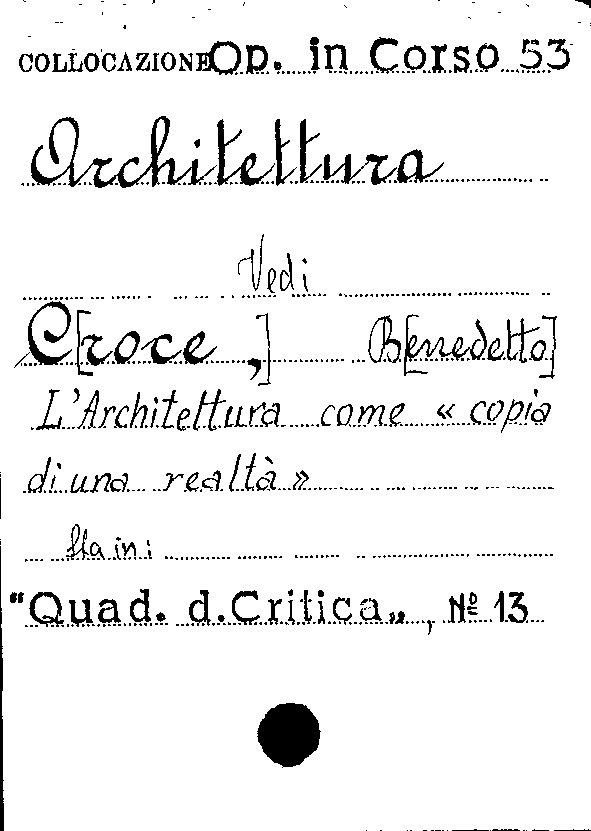 COLLOCAZIONE Op. in Corso 53
Architettura
Vedi
C[roce,] B[enedetto]
L'Architettura come « copia
di una realtà »
Sta in:
"Quad. d. Critica„, Nº 13